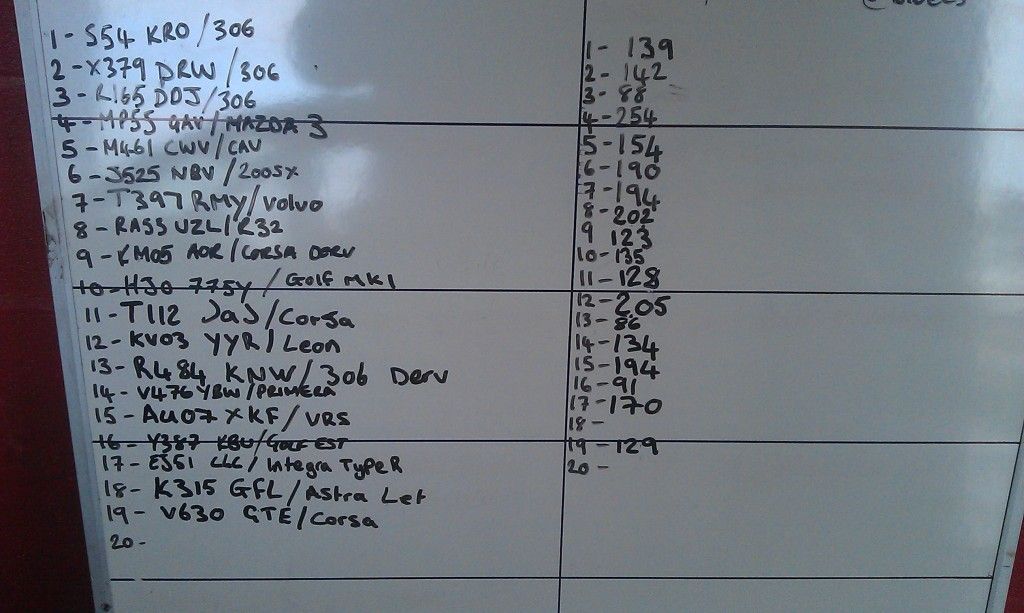 1- S54 KRO/306
2- X379 DRW/306
3- R165 DDJ/306
4- MP55 GAV/MAZDA 3
5- M461 CWV/CAV
6- J525 NBV/200SX
7- T397 RMY/Volvo
8- RA55 UZL/R32
9- KM05 AOR/CORSA DERV
10- HJO 775Y/Golf MK1
11- T112 JAJ/Corsa
12- KV03 YYR/Leon
13- R484 KNW/306 Derv
14- V476 YBW/PRIMERA
15- AU07 XKF/VRS
16- Y387 KBU/GOLF EST
17- EJ51 LLC/Integra TypeR
18- K315 GFL/Astra Let
19- V630 GTE/Corsa
20-
1- 139
2- 142
3- 88
4- 254
5- 154
6- 190
7- 194
8- 202
9 123
10- 135
11- 128
12- 205
13- 86
14- 134
15- 194
16- 91
17- 170
18-
19- 129
20-